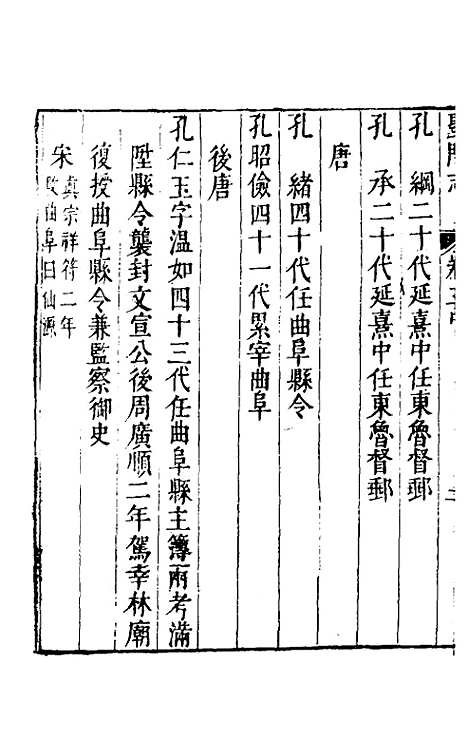 孔　綱二十代延熹中任東魯督郵
孔　承二十代延熹中任東魯督郵
唐
孔　緒四十代任曲阜縣令
孔昭儉四十一代累宰曲阜
後唐
孔仁玉字溫如四十三代任曲阜縣主簿兩考滿
陞縣令襲封文宣公後周廣順二年駕幸林廟
復授曲阜縣令兼監察御史
宋真宗祥符二年
改曲阜曰仙源